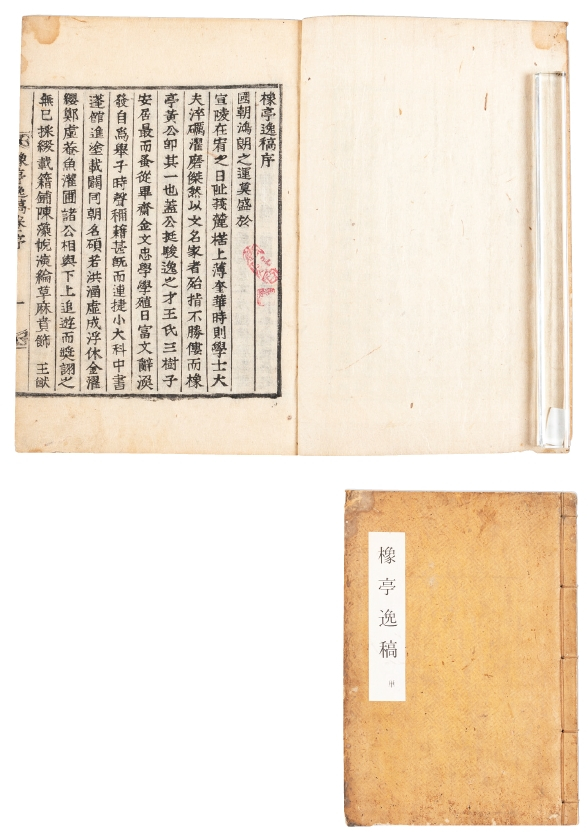 橡亭逸稿序
國朝鴻朗之運莫盛於
宣陵在宥之日阯莪麓楛上薄奎華時則學士大
夫淬礪濯磨傑然以文名家者殆指不勝僂而橡
亭黃公卽其一也蓋公挺駿逸之才王氏三樹子
安居最而蚤從畢齋金文忠學學殖日富文辭渙
發自爲擧子時聲稱籍甚旣而連捷小大科中書
蓬館進塗載闢同朝名碩若洪涵虛成浮休金濯
纓鄭虛菴魚灌圃諸公相與下上追遊而獎詡之
無已採綴載籍鋪陳藻 演綸草麻賁飾 王猷
橡亭逸稿 序
一
橡亭逸稿
單